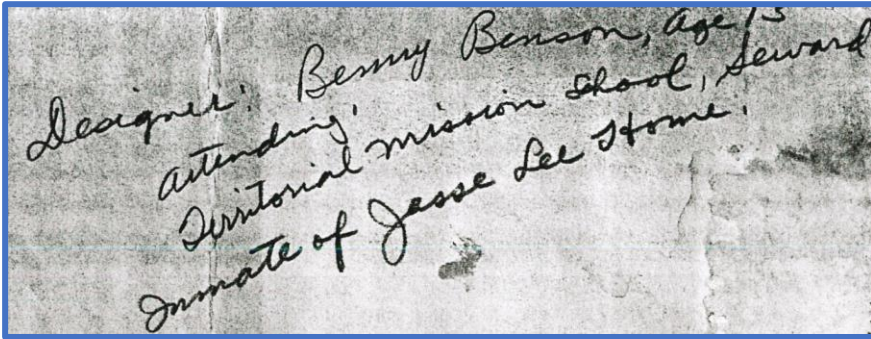 Designer: Benny Benson, age 13
attending,
Territorial mission school, Seward
Inmate of Jesse Lee Home.